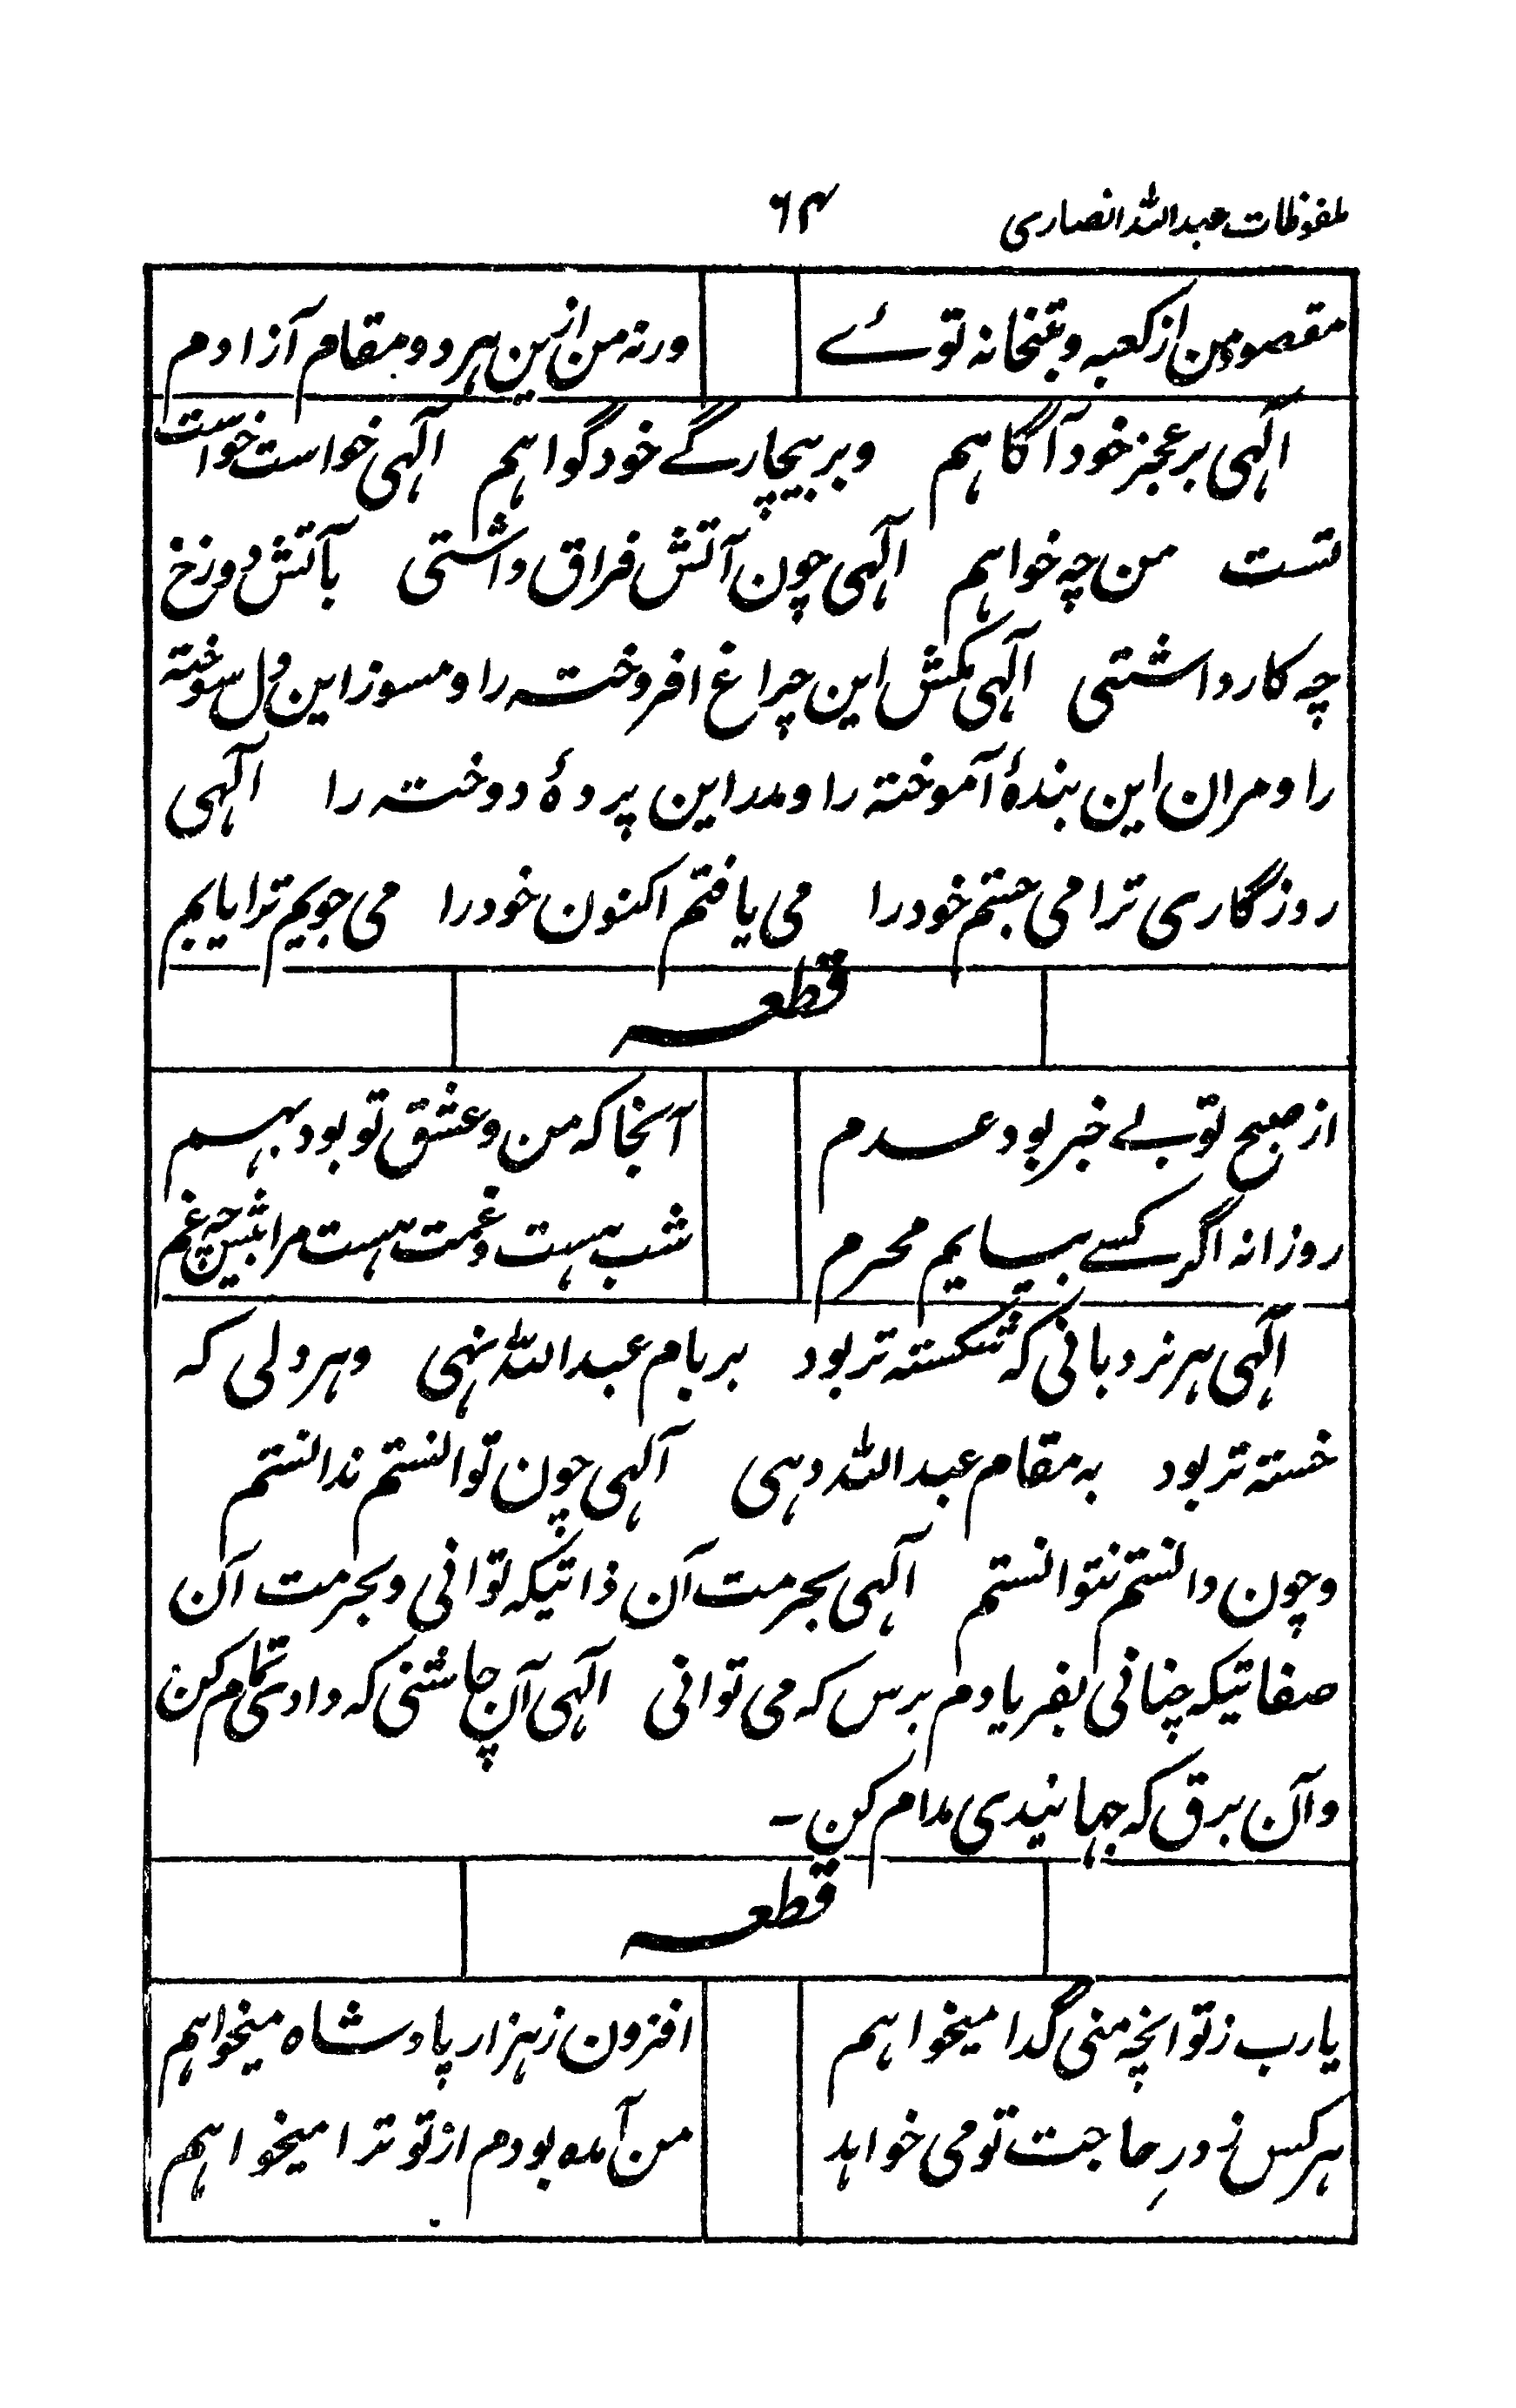 ملفوظات عبداللہ انصاری ۶۴
مقصود من از کعبہ و بتخانہ توئے ورنہ من ازین ہر دو مقام آزادم
الٰہی بر عجز خود آگاہم وبر بیچارگے خود گواہم الٰہی خواست خواست
تست من چہ خواہم الٰہی چون آتش فراق داشتی بآتش دوزخ
چہ کار داشتی الٰہی مکش این چراغ افروختہ را و مسوز این دل سوختہ
را و مران این بندۂ آموختہ را و مدر این پردۂ دوختہ را الٰہی
روزگاری ترا می جستم خود را می یافتم اکنون خود را می جویم ترا یابم
قطعہ
از صبح توبے خبر بود عدم آنجا کہ من و عشق تو بود بہم
روزانہ اگر کسے بیایم محرم شب ہست و غمت ہست مرا بیش چہ غم
الٰہی ہر نردبانی کہ شکستہ تر بود بر بام عبداللہ نہی وہر دلی کہ
خستہ تر بود بہ مقام عبداللہ دہی الٰہی چون توانستم ندانستم
وچون دانستم نتوانستم الٰہی بحرمت آن ذاتیکہ توانی و بحرمت آن
صفاتیکہ چنانی بفریادم برس کہ می توانی الٰہی آن چاشنی کہ دادی تمام کن
وآن برق کہ جہانیدی مدام کن ۔
قطعہ
یارب ز تو انچہ منی گدا میخواہم افزون ز ہزار پادشاہ میخواہم
ہر کس ز درِ حاجت تو می خواہد من آمدہ بودم از تو ترا میخواہم